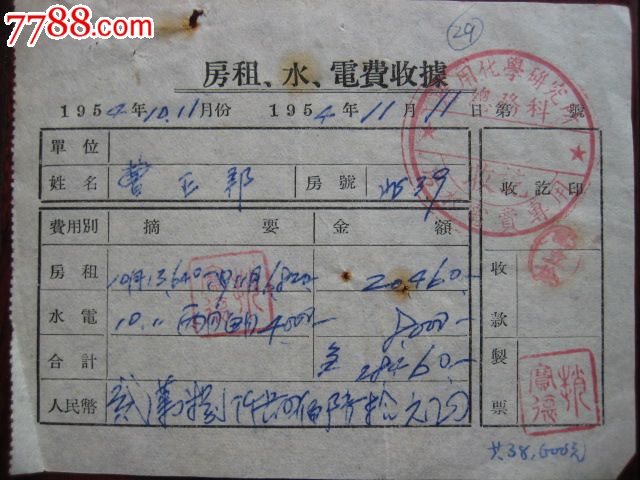 7788.com
29
房租、水、電費收據
1954年10.11月份 1954年11月11日第 號
用化學研究
總務科
單位
姓名 曹正邦 房號 39
收訖印
費用別 摘要 金額
房租 10月13640 11月6820 20460-
水電 10.11兩個月4000- 8000-
合計 28460-
人民幣 貳萬捌仟肆佰陸拾元
收款
製票
共38,600元